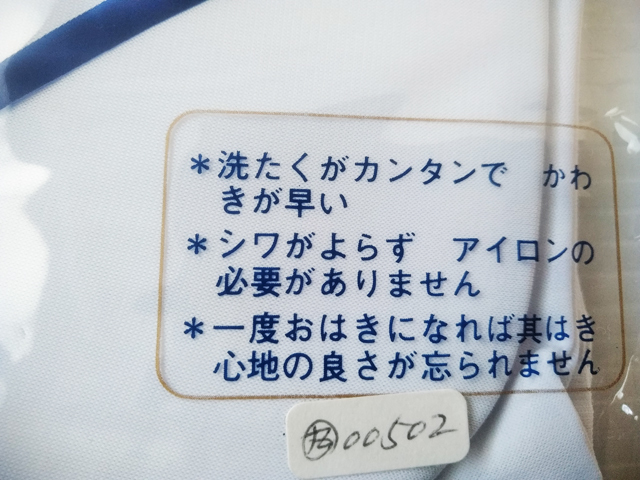 *洗たくがカンタンで　かわ
きが早い
*シワがよらず　アイロンの
必要がありません
*一度おはきになれば其はき
心地の良さが忘られません
00502